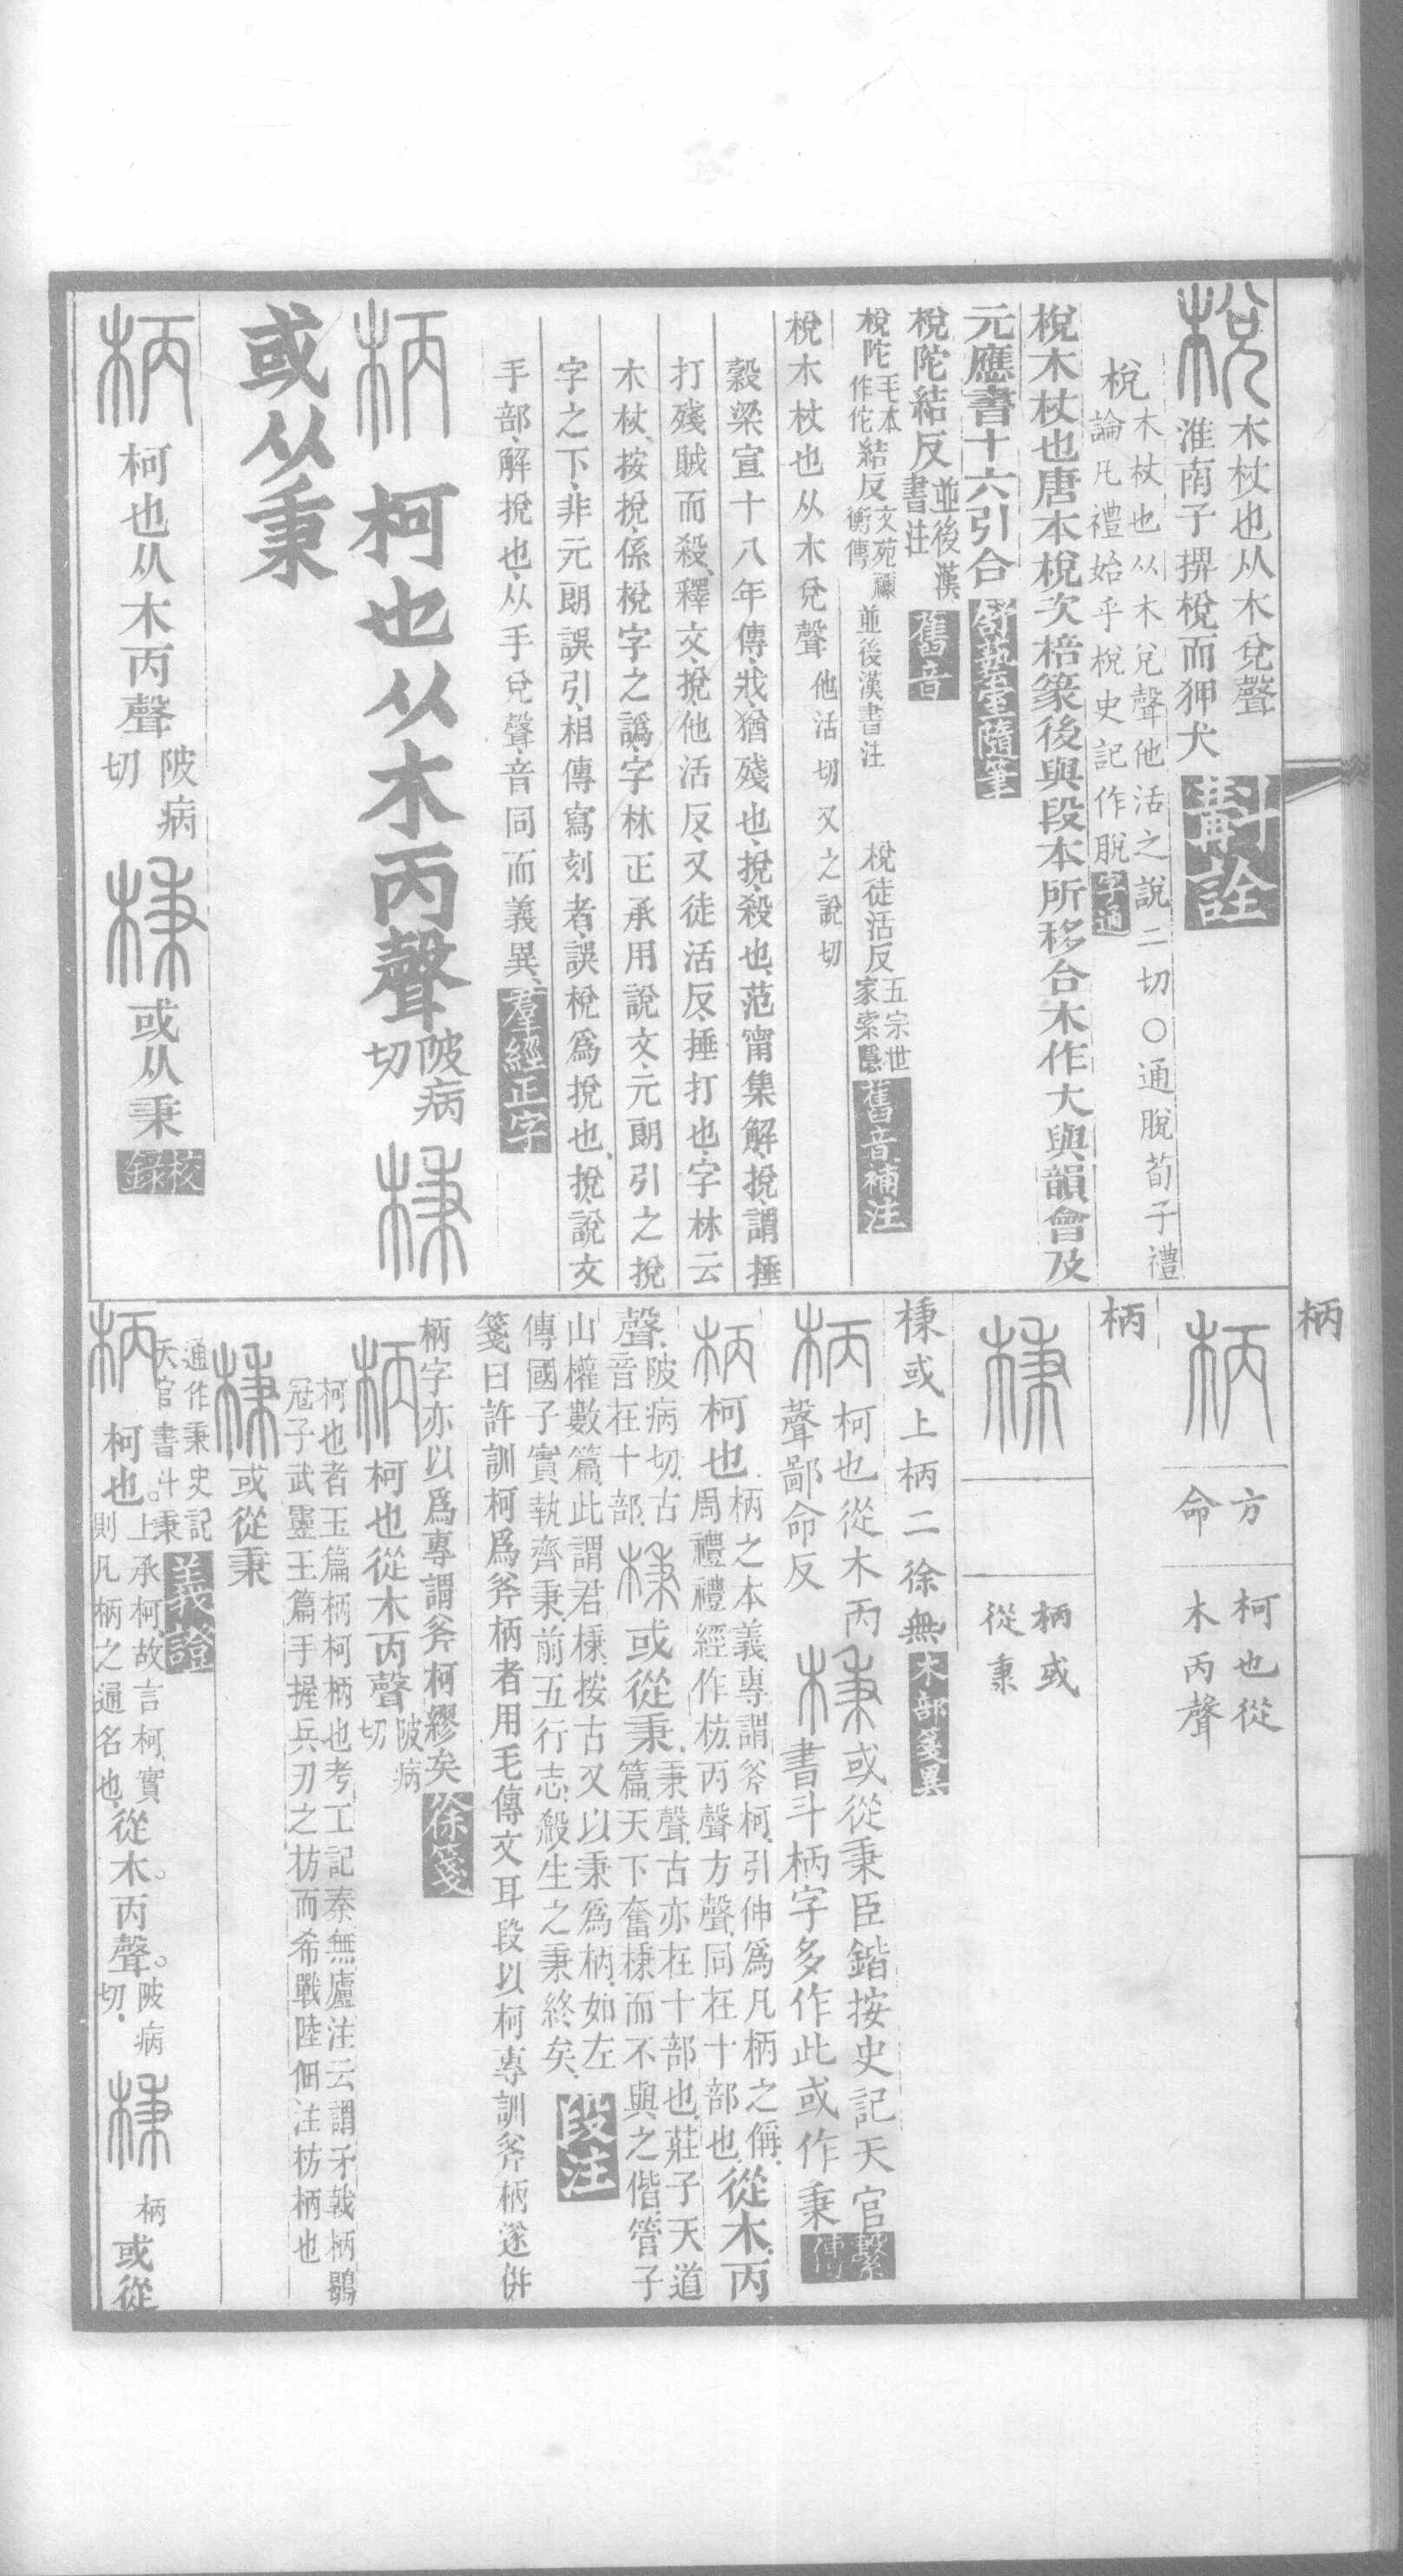 棁木杖也从木兌聲
淮南子捭棁而狎犬斠詮
棁木杖也从木兌聲他活之說二切○通脫荀子禮
論凡禮始乎棁史記作脫字通
棁木杖也唐本棁次棓篆後與段本所移合木作大與韻會及
元應書十六引合舒藝室隨筆
棁陀結反並後漢書注舊音
棁陀毛本作佗結反文苑禰衡傳並後漢書注
棁徒活反五宗世家索隱舊音補注
棁木杖也从木兌聲他活切又之說切
穀梁宣十八年傳、戕、猶殘也、挩、殺也、范甯集解、挩、謂捶
打殘賊而殺、釋文、挩、他活反、又徒活反、捶打也、字林云
木杖、按挩、係棁字之譌、字林正承用說文、元朗引之挩
字之下、非元朗誤引、相傳寫刻者、誤棁爲挩也、挩、說文
手部、解挩也、从手兌聲、音同而義異、羣經正字
柄柯也从木丙聲陂病切棅
或从秉
柄柯也从木丙聲陂病切棅或从秉校錄
柄
柄方命柯也從木丙聲
柄
棅柄或從秉
棅或上柄二徐無木部箋異
柄柯也從木丙聲鄙命反棅或從秉臣鍇按史記天官
書斗柄字多作此或作秉繫傳
柄柯也柄之本義專謂斧柯、引伸爲凡柄之偁、周禮禮經作枋、丙聲方聲、同在十部也、從木丙
聲、陂病切、古音在十部、棅或從秉、秉聲、古亦在十部也、莊子天道篇、天下奮棅而不與之偕、管子
山權數篇、此謂君棅、按古又以秉爲柄、如左
傳國子實執齊秉、前五行志、殺生之秉終矣、段注
箋曰許訓柯爲斧柄者用毛傳文耳段以柯專訓斧柄遂併
柄字亦以爲專謂斧柯繆矣徐箋
柄柯也從木丙聲陂病切
柯也者玉篇柄柯柄也考工記秦無廬注云謂矛戟柄鶡
冠子武靈王篇手握兵刃之枋而希戰陸佃注枋柄也
棅或從秉
通作秉史記
天官書斗秉義證
柄柯也。上承柯、故言柯、實則凡柄之通名也、從木。丙聲。陂病切、棅柄或從